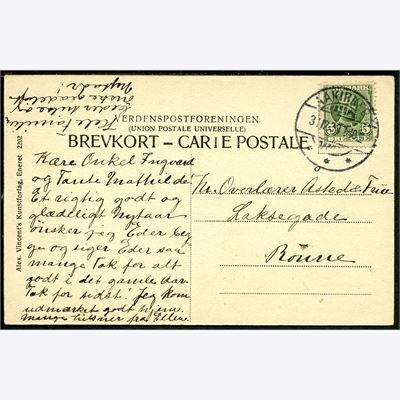 VERDENSPOSTFORENINGEN.
(UNION POSTALE UNIVERSELLE)
BREVKORT – CARTE POSTALE
Alex. Vincent's Kunstforlag, Eneret 2202
AAKIRKEBY
5 5
Kære Onkel Ingvard
og Tante Mathilde!
Et rigtig godt og
glædeligt Nytaar
ønsker jeg Eder beg
ge og siger Eder saa
mange Tak for alt
godt i det gamle Aar.
Tak for sidst! Jeg kom
udmærket godt hjem.
Mange hilsner fra Ellen.
Hr. Overlærer Asted & Frue
Laksegade
Rønne
Hele Familien
ønske glædeligt
Nytaar!